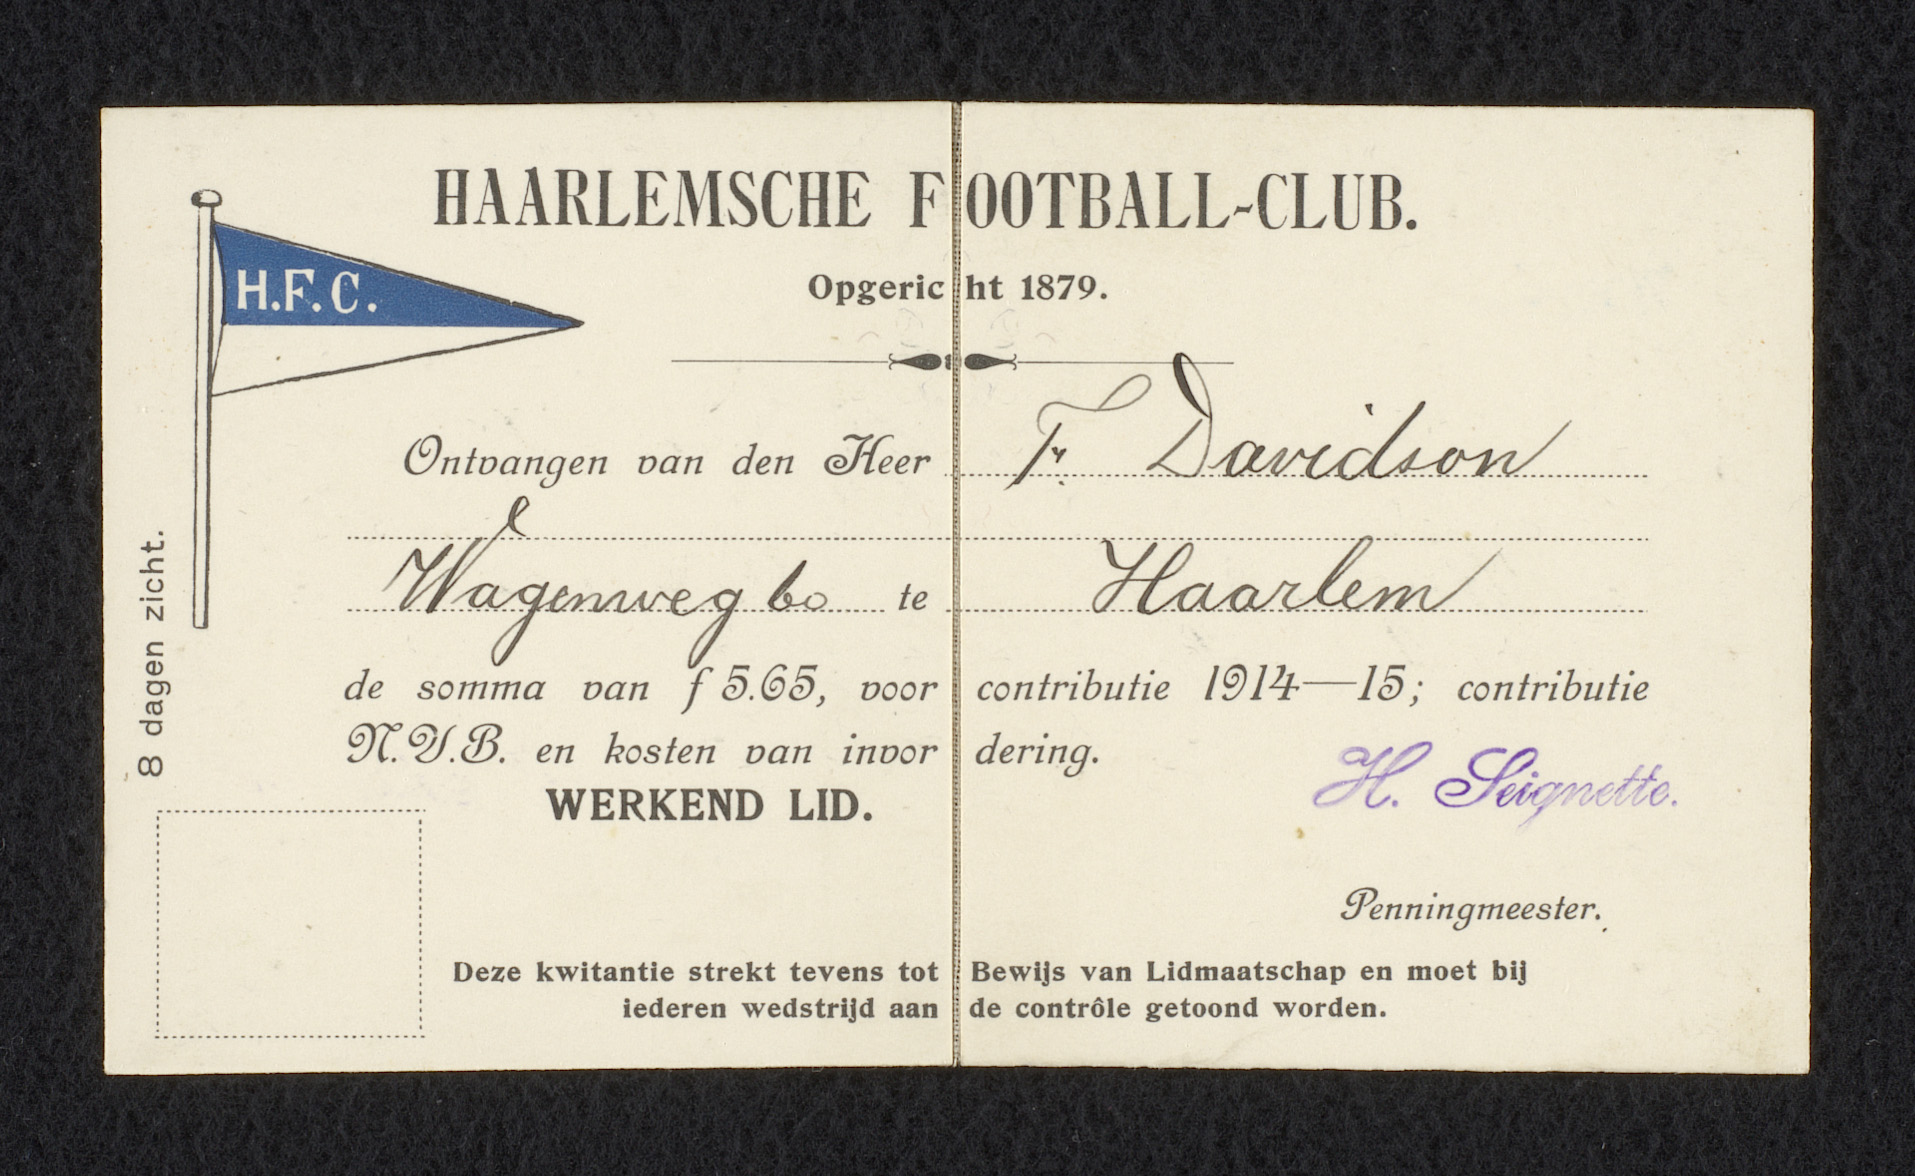 HAARLEMSCHE FOOTBALL-CLUB.
H.F.C.
Opgericht 1879.
Ontvangen van den Heer Fr. Davidson
Wagenweg 60 te Haarlem
de somma van f 5.65, voor contributie 1914—15; contributie
N.V.B. en kosten van invordering.
H. Seignette.
WERKEND LID.
Penningmeester.
8 dagen zicht.
Deze kwitantie strekt tevens tot Bewijs van Lidmaatschap en moet bij
iederen wedstrijd aan de contrôle getoond worden.